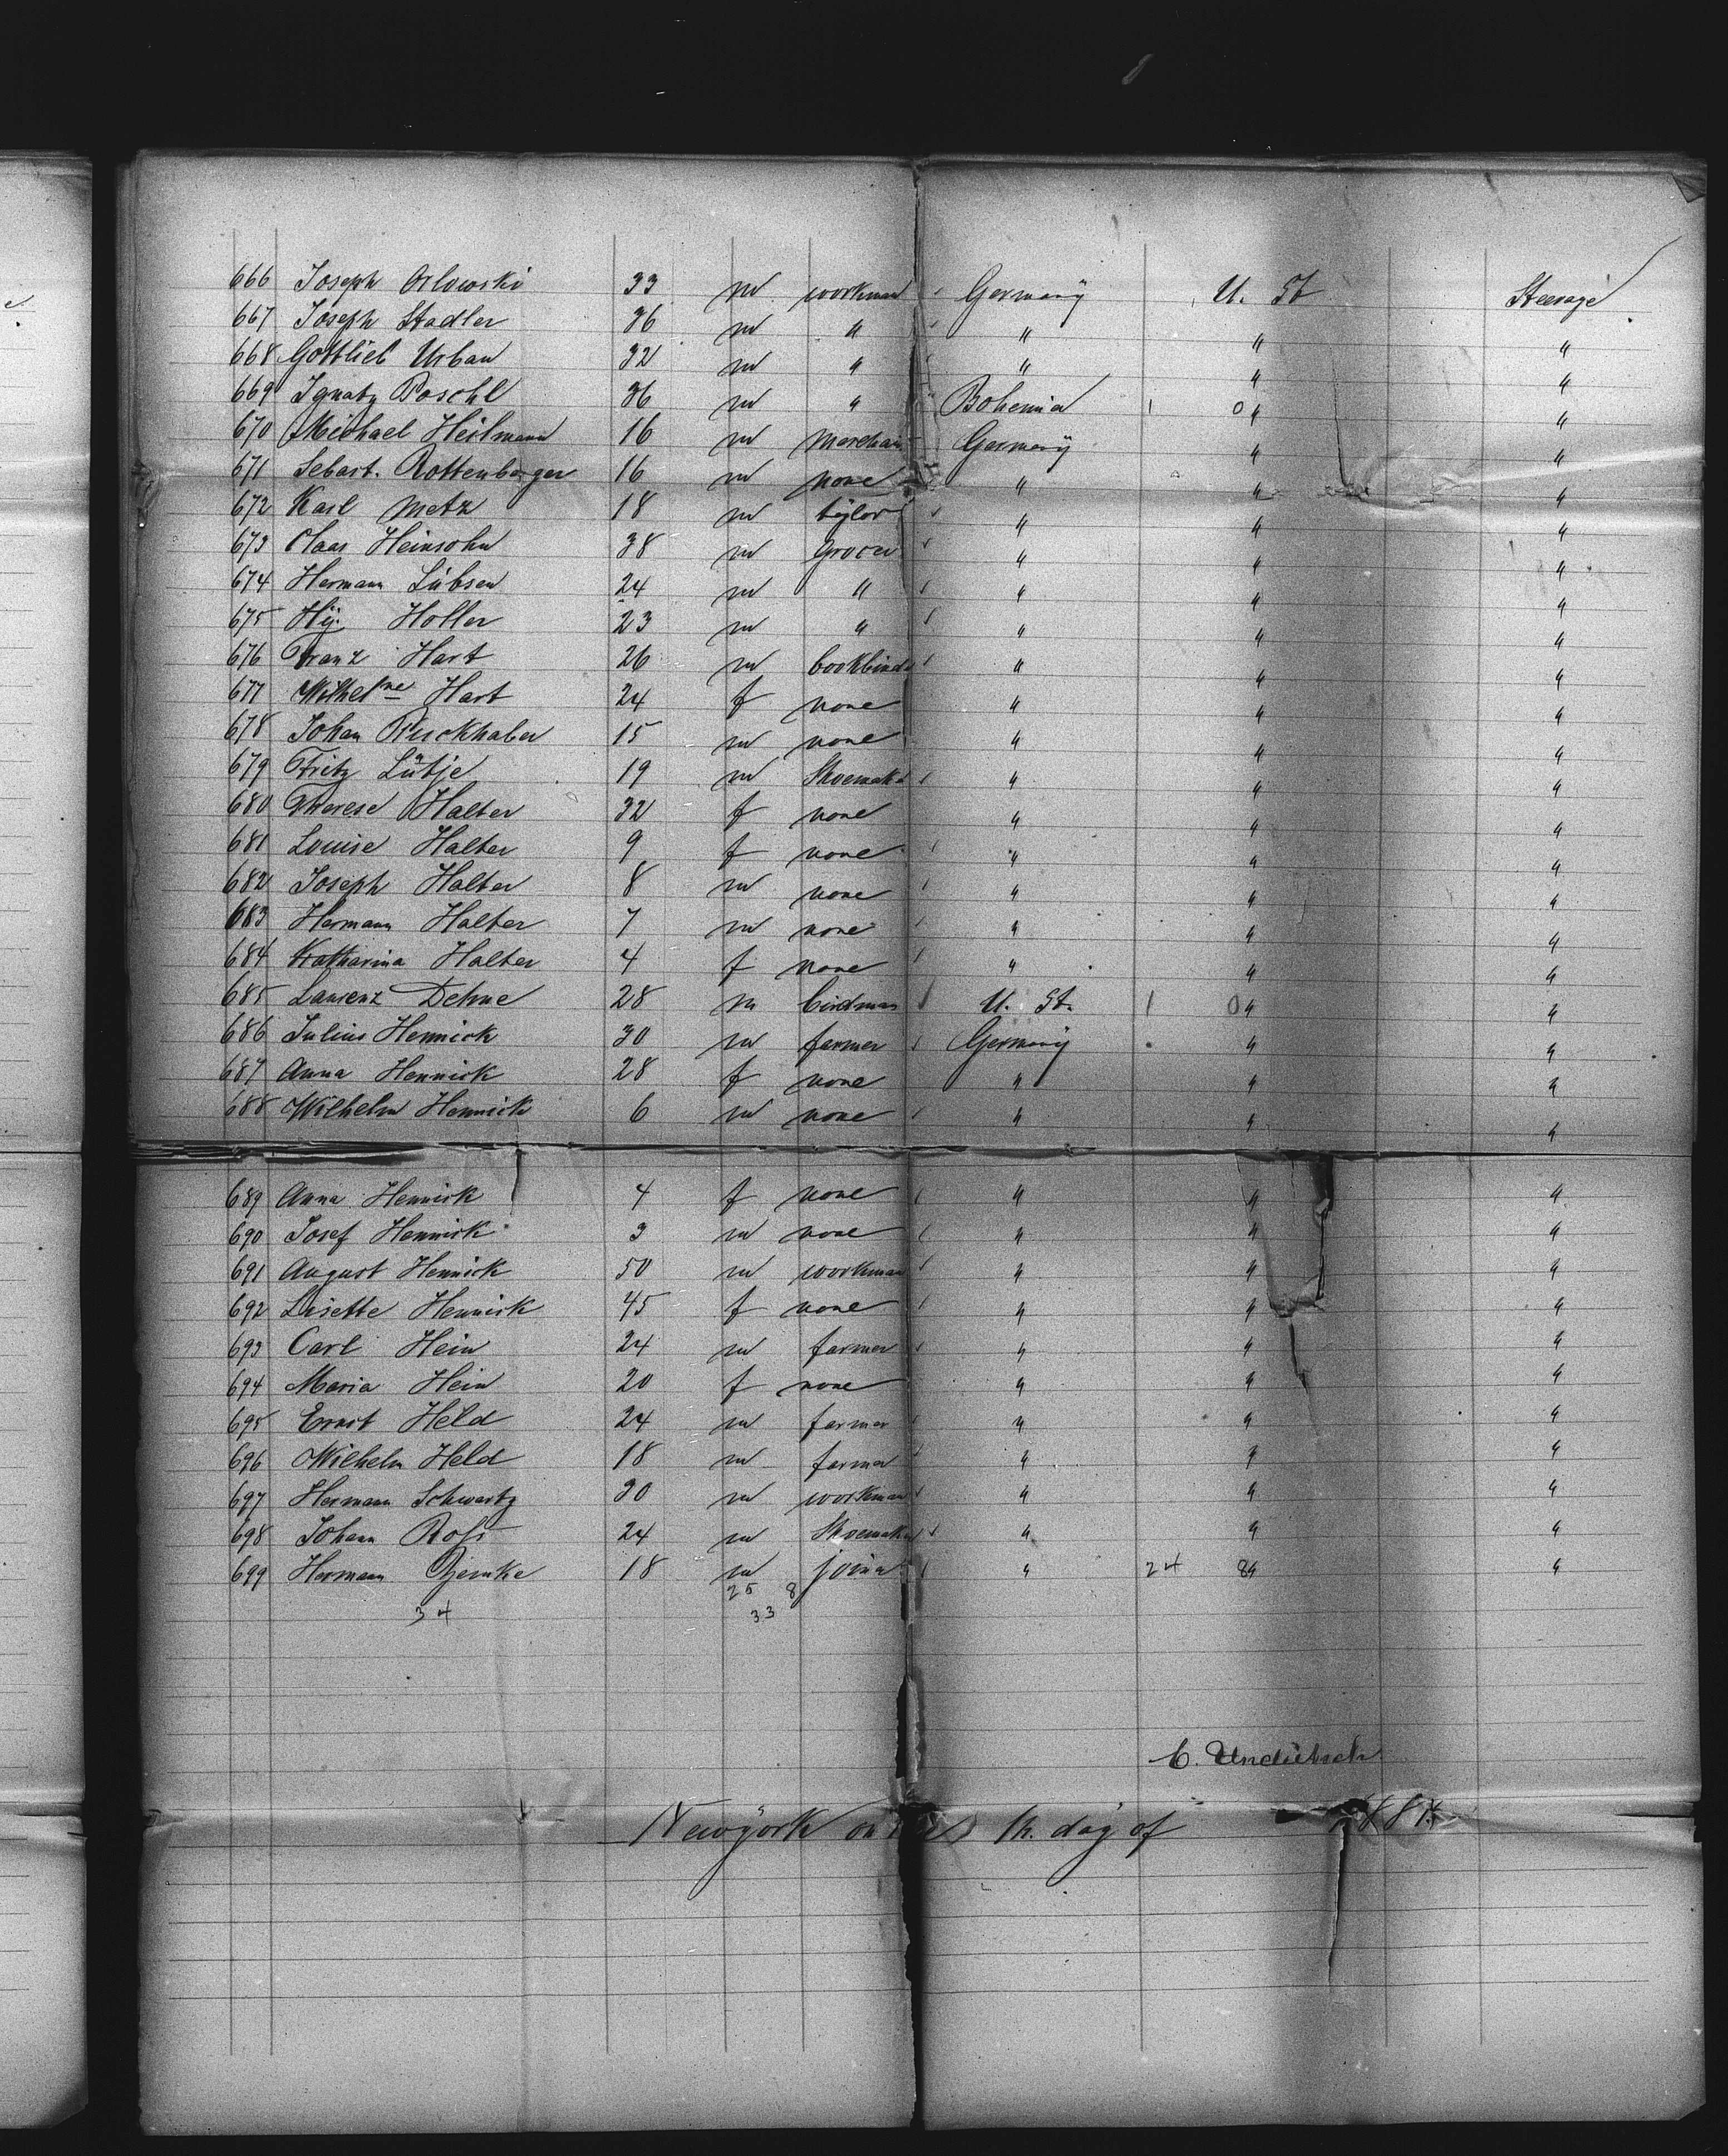 666 Joseph Orlowski 33 m workman Germany U. St Steerage
667 Joseph Stadler 36 m " " " "
668 Gottlieb Urban 32 m " " " "
669 Ignatz Poschl 36 m " Bohemia 1 0 " "
670 Michael Heilmann 16 m merchan Germany " "
671 Sebast. Rottenberger 16 m none " " "
672 Karl Metz 18 m tylor " " "
673 Claas Heinsohn 38 m grocer " " "
674 Hermann Lübsen 24 m " " " "
675 Hy. Holler 23 m " " " "
676 Franz Hart 26 m bookbind " " "
677 Wilhelne Hart 24 f none " " "
678 Johan Ruckhaber 15 m none " " "
679 Fritz Lütje 19 m Shoemak " " "
680 Therese Halter 32 f none " " "
681 Louise Halter 9 f none " " "
682 Joseph Halter 8 m none " " "
683 Hermann Halter 7 m none " " "
684 Katharina Halter 4 f none " " "
685 Laurenz Dehne 28 m birdman U. St. 1 0 " "
686 Julius Hennick 30 m farmer Germany " "
687 Anna Hennick 28 f none " " "
688 Wilhelm Hennick 6 m none " " "
689 Anna Hennick 4 f none " " "
690 Josef Hennick 3 m none " " "
691 August Hennick 50 m workman " " "
692 Lisette Hennick 45 f none " " "
693 Carl Hein 24 m farmer " " "
694 Maria Hein 20 f none " " "
695 Ernst Held 24 m farmer " " "
696 Wilhelm Held 18 m farmer " " "
697 Hermann Schwartz 30 m workman " " "
698 Johann Rofs 24 m Shoemak " " "
699 Hermann 18 m joiner " 24 8 " "
25 8
34 33
C. Undütsch
Newyork on th. day of 188